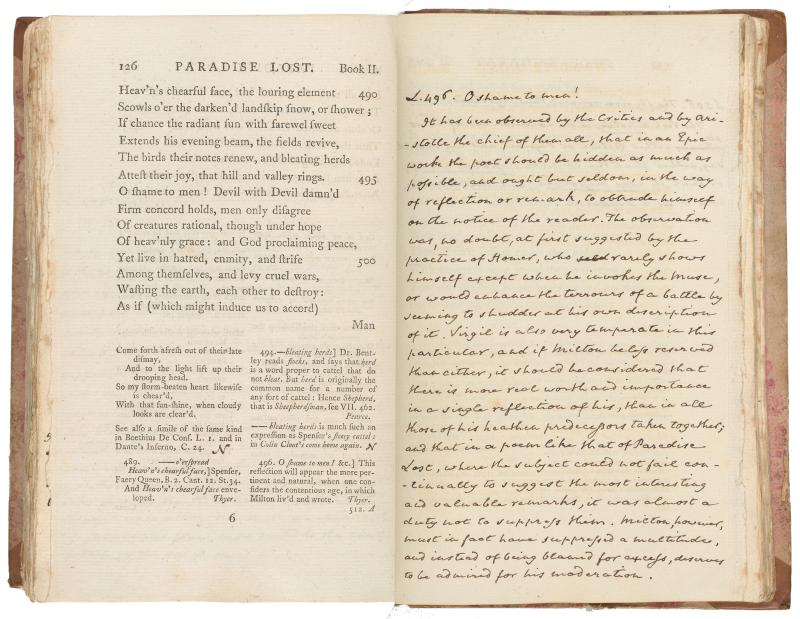 126 PARADISE LOST. Book II.
Heav'n's chearful face, the louring element 490
Scowls o'er the darken'd landſkip ſnow, or ſhower;
If chance the radiant ſun with farewel ſweet
Extends his evening beam, the fields revive,
The birds their notes renew, and bleating herds
Atteſt their joy, that hill and valley rings. 495
O ſhame to men! Devil with Devil damn'd
Firm concord holds, men only diſagree
Of creatures rational, though under hope
Of heav'nly grace: and God proclaiming peace,
Yet live in hatred, enmity, and ſtrife 500
Among themſelves, and levy cruel wars,
Waſting the earth, each other to deſtroy:
As if (which might induce us to accord)
Man
Come forth afreſh out of their late
diſmay,
And to the light lift up their
drooping head.
So my ſtorm-beaten heart likewiſe
is chear'd,
With that ſun-ſhine, when cloudy
looks are clear'd.
See alſo a ſimile of the ſame kind
in Boethius De Conſ. L. 1. and in
Dante's Inferno, C. 24. N
489. ——o'erſpread
Heav'n's chearful face,] Spenſer,
Faery Queen, B. 2. Cant. 12. St. 34.
And Heav'n's chearful face enve-
loped. Thyer.
494.—bleating herds] Dr. Bent-
ley reads flocks, and ſays that herd
is a word proper to cattel that do
not bleat. But herd is originally the
common name for a number of
any ſort of cattel: Hence Shepherd,
that is Sheepherdſman, ſee VII. 462.
Pearce.
—— bleating herds is much ſuch an
expreſſion as Spenſer's fleecy cattel:
in Colin Clout's come home again. N
496. O ſhame to men! &c.] This
reflection will appear the more per-
tinent and natural, when one con-
ſiders the contentious age, in which
Milton liv'd and wrote. Thyer.
512. A
6
L.496. O shame to men!
It has been observed by the Critics and by Ari-
-stotle the chief of them all, that in an Epic
work the poet should be hidden as much as
poſsible, and ought but seldom, in the way
of reflection or remark, to obtrude himself
on the notice of the reader. The observation
was, no doubt, at first suggested by the
practice of Homer, who rarely shows
himself except when he invokes the Muse,
or would enhance the terrours of a battle by
seeming to shudder at his own description
of it. Virgil is also very temperate in this
particular, and if Milton be leſs reserved
than either, it should be considered that
there is more real worth and importance
in a single reflection of his, than in all
those of his heathen predeceſsors taken together;
and that in a poem like that of Paradise
Lost, where the subject could not fail con-
-tinually to suggest the most interesting
and valuable remarks, it was almost a
duty not to suppreſs them. Milton, however,
must in fact have suppreſsed a multitude,
and instead of being blamed for exceſs, deserves
to be admired for his moderation.